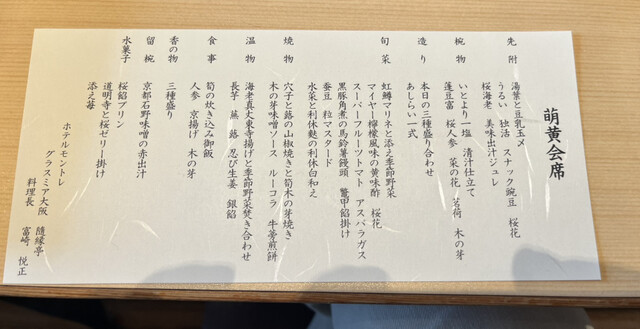 萌黄会席
先附
湯葉と豆乳玉〆
うるい 独活 スナック豌豆 桜花
桜海老 美味出汁ジュレ
椀物
いとより一塩 清汁仕立て
蓬豆富 桜人参 菜の花 茗荷 木の芽
造り
本日の三種盛り合わせ
あしらい一式
旬菜
虹鱒マリネと添え季節野菜
マイヤー檸檬風味の黄味酢 桜花
スーパーフルーツトマト アスパラガス
黒豚角煮の馬鈴薯饅頭 鼈甲餡掛け
蚕豆 粒マスタード
水菜と利休麩の利休白和え
焼物
穴子と蕗の山椒焼きと筍木の芽焼き
木の芽味噌ソース ルーコラ 牛蒡煎餅
温物
海老真丈東寺揚げと季節野菜焚き合わせ
長芋 蕪 蕗 忍び生姜 銀餡
食事
筍の炊き込み御飯
人参 京揚げ 木の芽
香の物
三種盛り
留椀
京都石野味噌の赤出汁
水菓子
桜餡プリン
道明寺と桜ゼリー掛け
添え苺
ホテルモントレ
グラスミア大阪 随縁亭
料理長 富崎 悦正